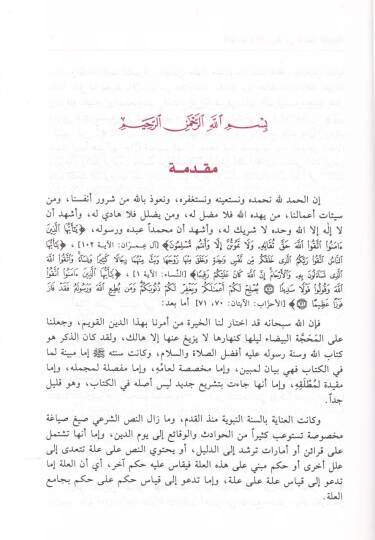 بِسْمِ اللَّهِ الرَّحْمَنِ الرَّحِيمِ
مقدمة
إن الحمد لله نحمده ونستعينه ونستغفره، ونعوذ بالله من شرور أنفسنا، ومن
سيئات أعمالنا، من يهده الله فلا مضل له، ومن يضلل فلا هادي له، وأشهد أن
لا إله إلا الله وحده لا شريك له، وأشهد أن محمداً عبده ورسوله، ﴿يَٰٓأَيُّهَا ٱلَّذِينَ
ءَامَنُوا ٱتَّقُوا ٱللَّهَ حَقَّ تُقَاتِهِۦ وَلَا تَمُوتُنَّ إِلَّا وَأَنتُم مُّسْلِمُونَ﴾ [آل عِمرَان: الآية ١٠٢]، ﴿يَٰٓأَيُّهَا
ٱلنَّاسُ ٱتَّقُوا رَبَّكُمُ ٱلَّذِى خَلَقَكُم مِّن نَّفْسٍ وَٰحِدَةٍ وَخَلَقَ مِنْهَا زَوْجَهَا وَبَثَّ مِنْهُمَا رِجَالًا كَثِيرًا وَنِسَآءً وَٱتَّقُوا ٱللَّهَ
ٱلَّذِى تَسَآءَلُونَ بِهِۦ وَٱلْأَرْحَامَ إِنَّ ٱللَّهَ كَانَ عَلَيْكُمْ رَقِيبًا﴾ [النِّساء: الآية ١]، ﴿يَٰٓأَيُّهَا ٱلَّذِينَ ءَامَنُوا ٱتَّقُوا
ٱللَّهَ وَقُولُوا قَوْلًا سَدِيدًا ۝ يُصْلِحْ لَكُمْ أَعْمَٰلَكُمْ وَيَغْفِرْ لَكُمْ ذُنُوبَكُمْ وَمَن يُطِعِ ٱللَّهَ وَرَسُولَهُۥ فَقَدْ فَازَ
فَوْزًا عَظِيمًا ۝﴾ [الأحزَاب: الآيتان: ٧٠، ٧١] أما بعد:
فإن الله سبحانه قد اختار لنا الخيرة من أمرنا بهذا الدين القويم، وجعلنا
على المَحَجَّة البيضاء ليلها كنهارها لا يزيغ عنها إلا هالك، ولقد كان الذكر هو
كتاب الله وسنة رسوله عليه أفضل الصلاة والسلام، وكانت سنته ﷺ إما مبينة لما
في الكتاب فهي بيان لمبين، وإما مخصصة لعامِّه، وإما مفصلة لمجمله، وإما
مقيدة لمُطْلَقِه، وإما أنها جاءت بتشريع جديد ليس أصله في الكتاب، وهو قليل
جداً.
وكانت العناية بالسنة النبوية منذ القدم، وما زال النص الشرعي صيغ صياغة
مخصوصة تستوعب كثيراً من الحوادث والوقائع إلى يوم الدين، وإما أنها تشتمل
على قرائن أو أمارات ترشد إلى الدليل، أو يحتوي النص على علة تتعدى إلى
علل أخرى أو حكم مبني على هذه العلة فيقاس عليه حكم آخر، أي أن العلة إما
تدعو إلى قياس علة على علة، وإما تدعو إلى قياس حكم على حكم بجامع
العلة.